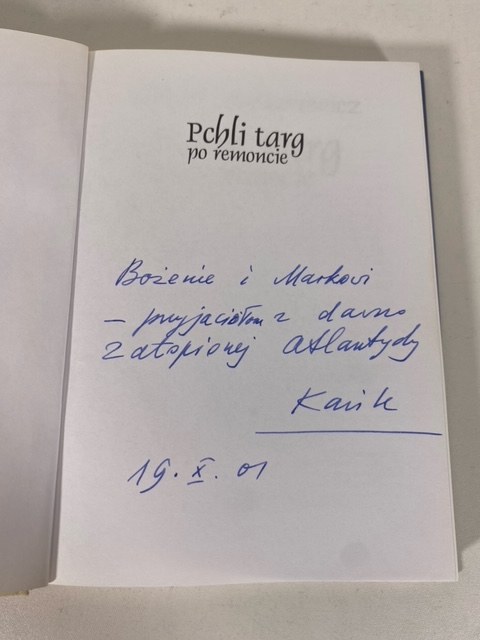 Pchli targ
po remoncie
Bożenie i Markowi
– przyjaciołom z dawno
zatopionej Atlantydy
Kazik
19. X. 01